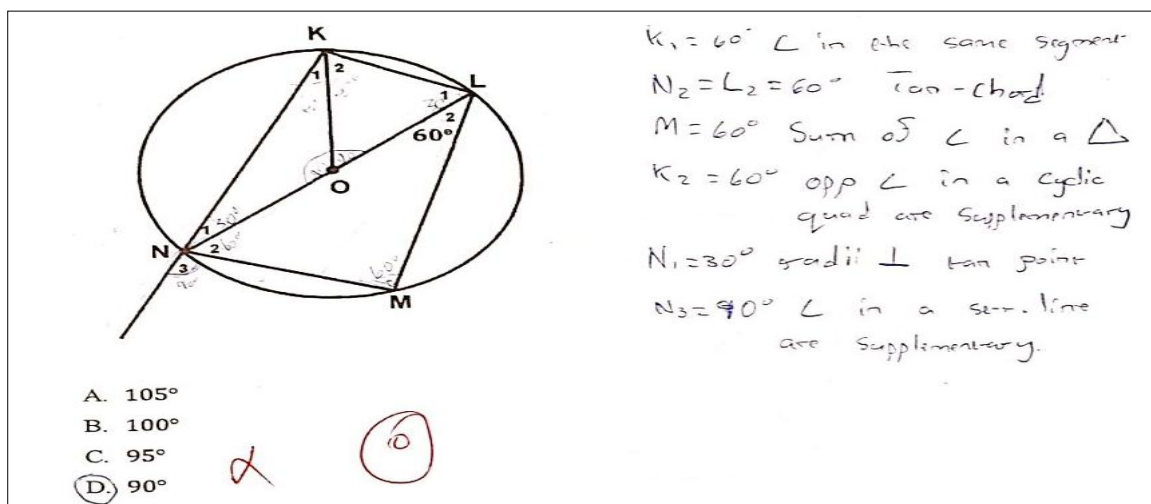 K
1 2
L
1
2
60°
O
N
1
30°
2
60°
3
90°
60°
M
K₁ = 60° ∠ in the same segment
N₂ = L₂ = 60° Tan-Chod
M = 60° Sum of ∠ in a △
K₂ = 60° opp ∠ in a cyclic
quad are supplementary
N₁ = 30° radii ⊥ tan point
N₃ = 90° ∠ in a line
are supplementary.
A. 105°
B. 100°
C. 95°
D. 90°
0